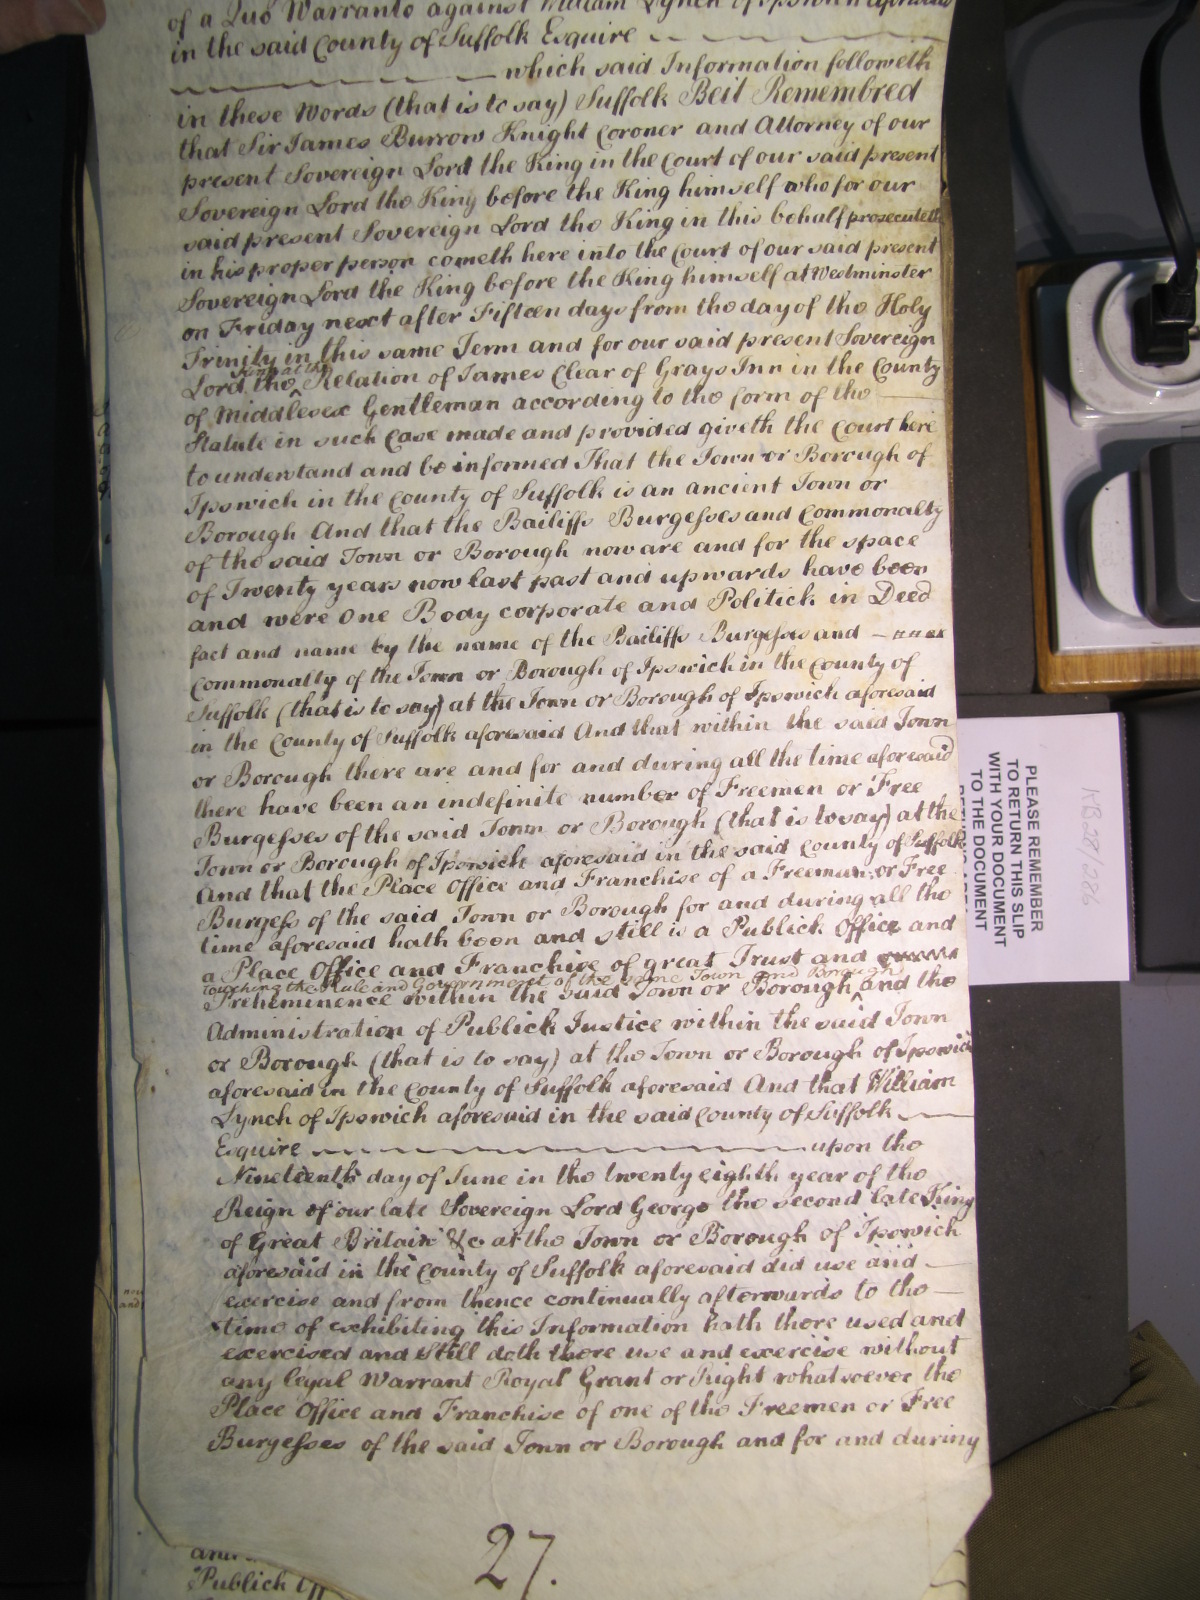 of a Quo Warranto against William Lynch of Ipswich aforesaid
in the said County of Suffolk Esquire
which said Information followeth
in these Words (that is to say) Suffolk Beit Remembred
that Sir James Burrow Knight Coroner and Attorney of our
present Sovereign Lord the King in the Court of our said present
Sovereign Lord the King before the King himself who for our
said present Sovereign Lord the King in this behalf prosecuteth
in his proper person cometh here into the Court of our said present
Sovereign Lord the King before the King himself at Westminster
on Friday next after Fifteen days from the day of the Holy
Trinity in this same Term and for our said present Sovereign
Lord the ^ Relation of James Clear of Grays Inn in the County
of Middlesex Gentleman according to the form of the
Statute in such Case made and provided giveth the Court here
to understand and be informed That the Town or Borough of
Ipswich in the County of Suffolk is an ancient Town or
Borough And that the Bailiffs Burgesses and Commonalty
of the said Town or Borough now are and for the space
of Twenty years now last past and upwards have been
and were One Body corporate and Politick in Deed
fact and name by the name of the Bailiffs Burgesses and
Commonalty of the Town or Borough of Ipswich in the County of
Suffolk (that is to say) at the Town or Borough of Ipswich aforesaid
in the County of Suffolk aforesaid And that within the said Town
or Borough there are and for and during all the time aforesaid
there have been an indefinite number of Freemen or Free
Burgesses of the said Town or Borough (that is to say) at the
Town or Borough of Ipswich aforesaid in the said County of Suffolk
And that the Place Office and Franchise of a Freeman or Free
Burgess of the said Town or Borough for and during all the
time aforesaid hath been and still is a Publick Office and
a Place Office and Franchise of great Trust and
touching the Rule and Government of the same Town and Borough
Preheminence within the said Town or Borough ^ and the
Administration of Publick Justice within the said Town
or Borough (that is to say) at the Town or Borough of Ipswich
aforesaid in the County of Suffolk aforesaid And that William
Lynch of Ipswich aforesaid in the said County of Suffolk
Esquire upon the
Nineteenth day of June in the twenty eighth year of the
Reign of our late Sovereign Lord George the second late King
of Great Britain &c at the Town or Borough of Ipswich
aforesaid in the County of Suffolk aforesaid did use and
exercise and from thence continually afterwards to the
time of exhibiting this Information hath there used and
exercised and still doth there use and exercise without
any legal Warrant Royal Grant or Right whatsoever the
Place Office and Franchise of one of the Freemen or Free
Burgesses of the said Town or Borough and for and during
27.
Publick Off
PLEASE REMEMBER
TO RETURN THIS SLIP
WITH YOUR DOCUMENT
TO THE DOCUMENT
KB 28/286